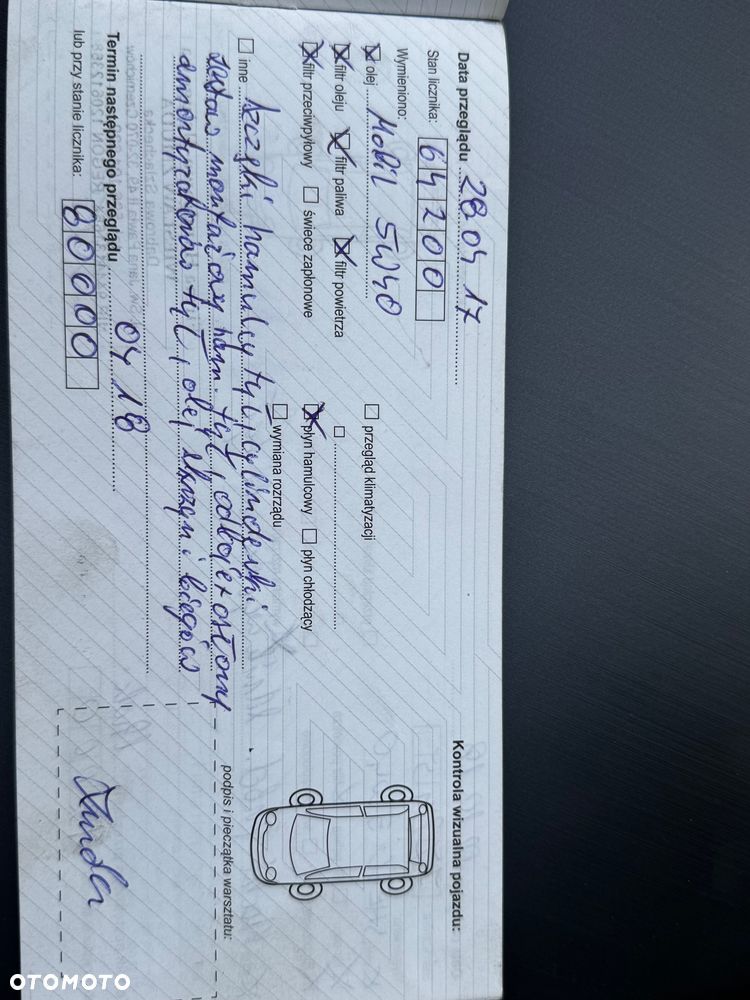 Data przeglądu 28.04.17
Kontrola wizualna pojazdu:
Stan licznika: 64200
Wymieniono:
olej Mobil 5W40
przegląd klimatyzacji
filtr oleju filtr paliwa filtr powietrza
filtr przeciwpyłowy świece zapłonowe
płyn hamulcowy płyn chłodzący
wymiana rozrządu
inne szczęki hamulcy tył, cylinderki
zestaw montażowy ham. tył, odboje + osłony
amortyzatorów tył, olej skrzyni biegów
podpis i pieczątka warsztatu:
Termin następnego przeglądu 04 18
lub przy stanie licznika: 80000
OTOMOTO